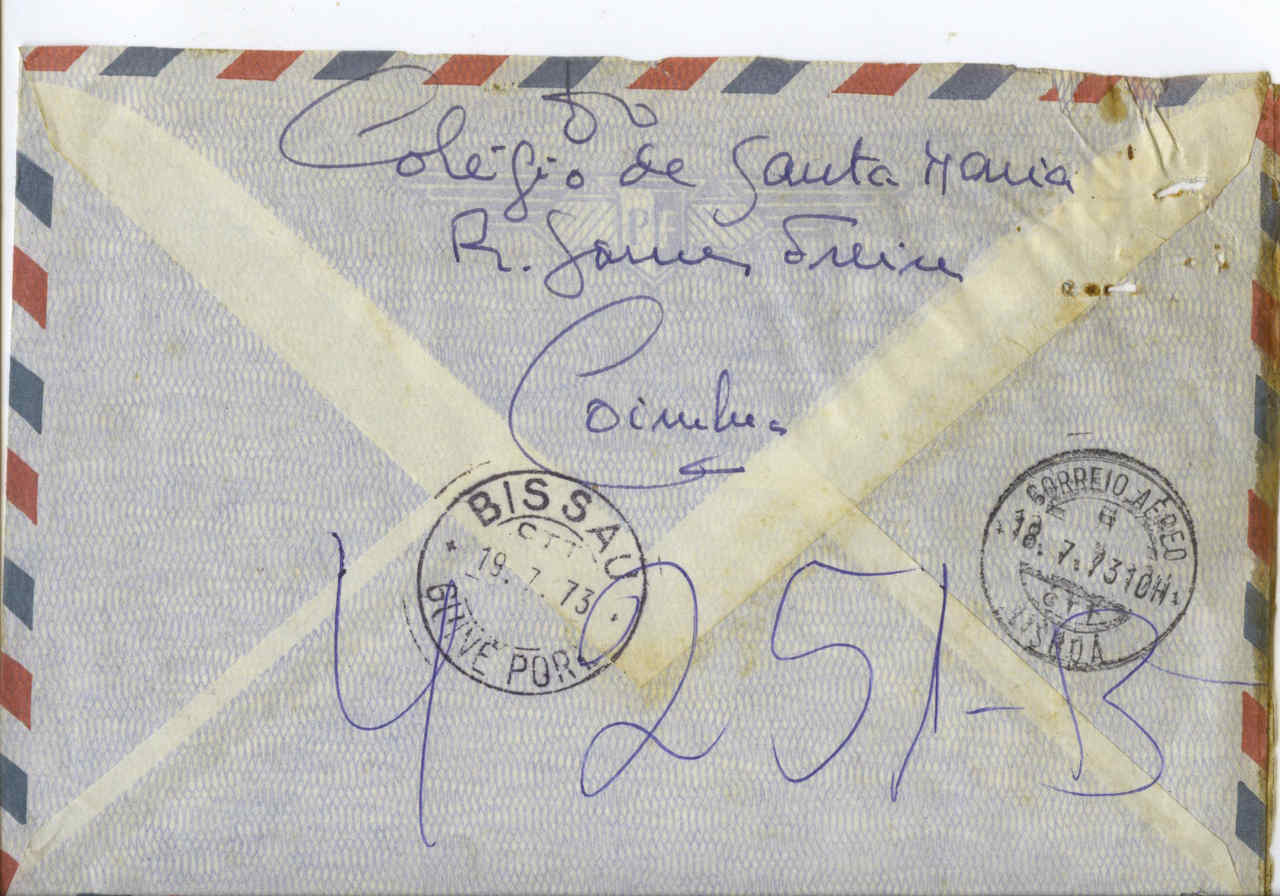 Do
Colégio de Santa Maria
R. Gomes Freire
Coimbra
BISSAU
CTT
19. 7. 73
GUINÉ PORT
CORREIO AÉREO
18. 7. 73 10H
CTT
LISBOA
4251-B